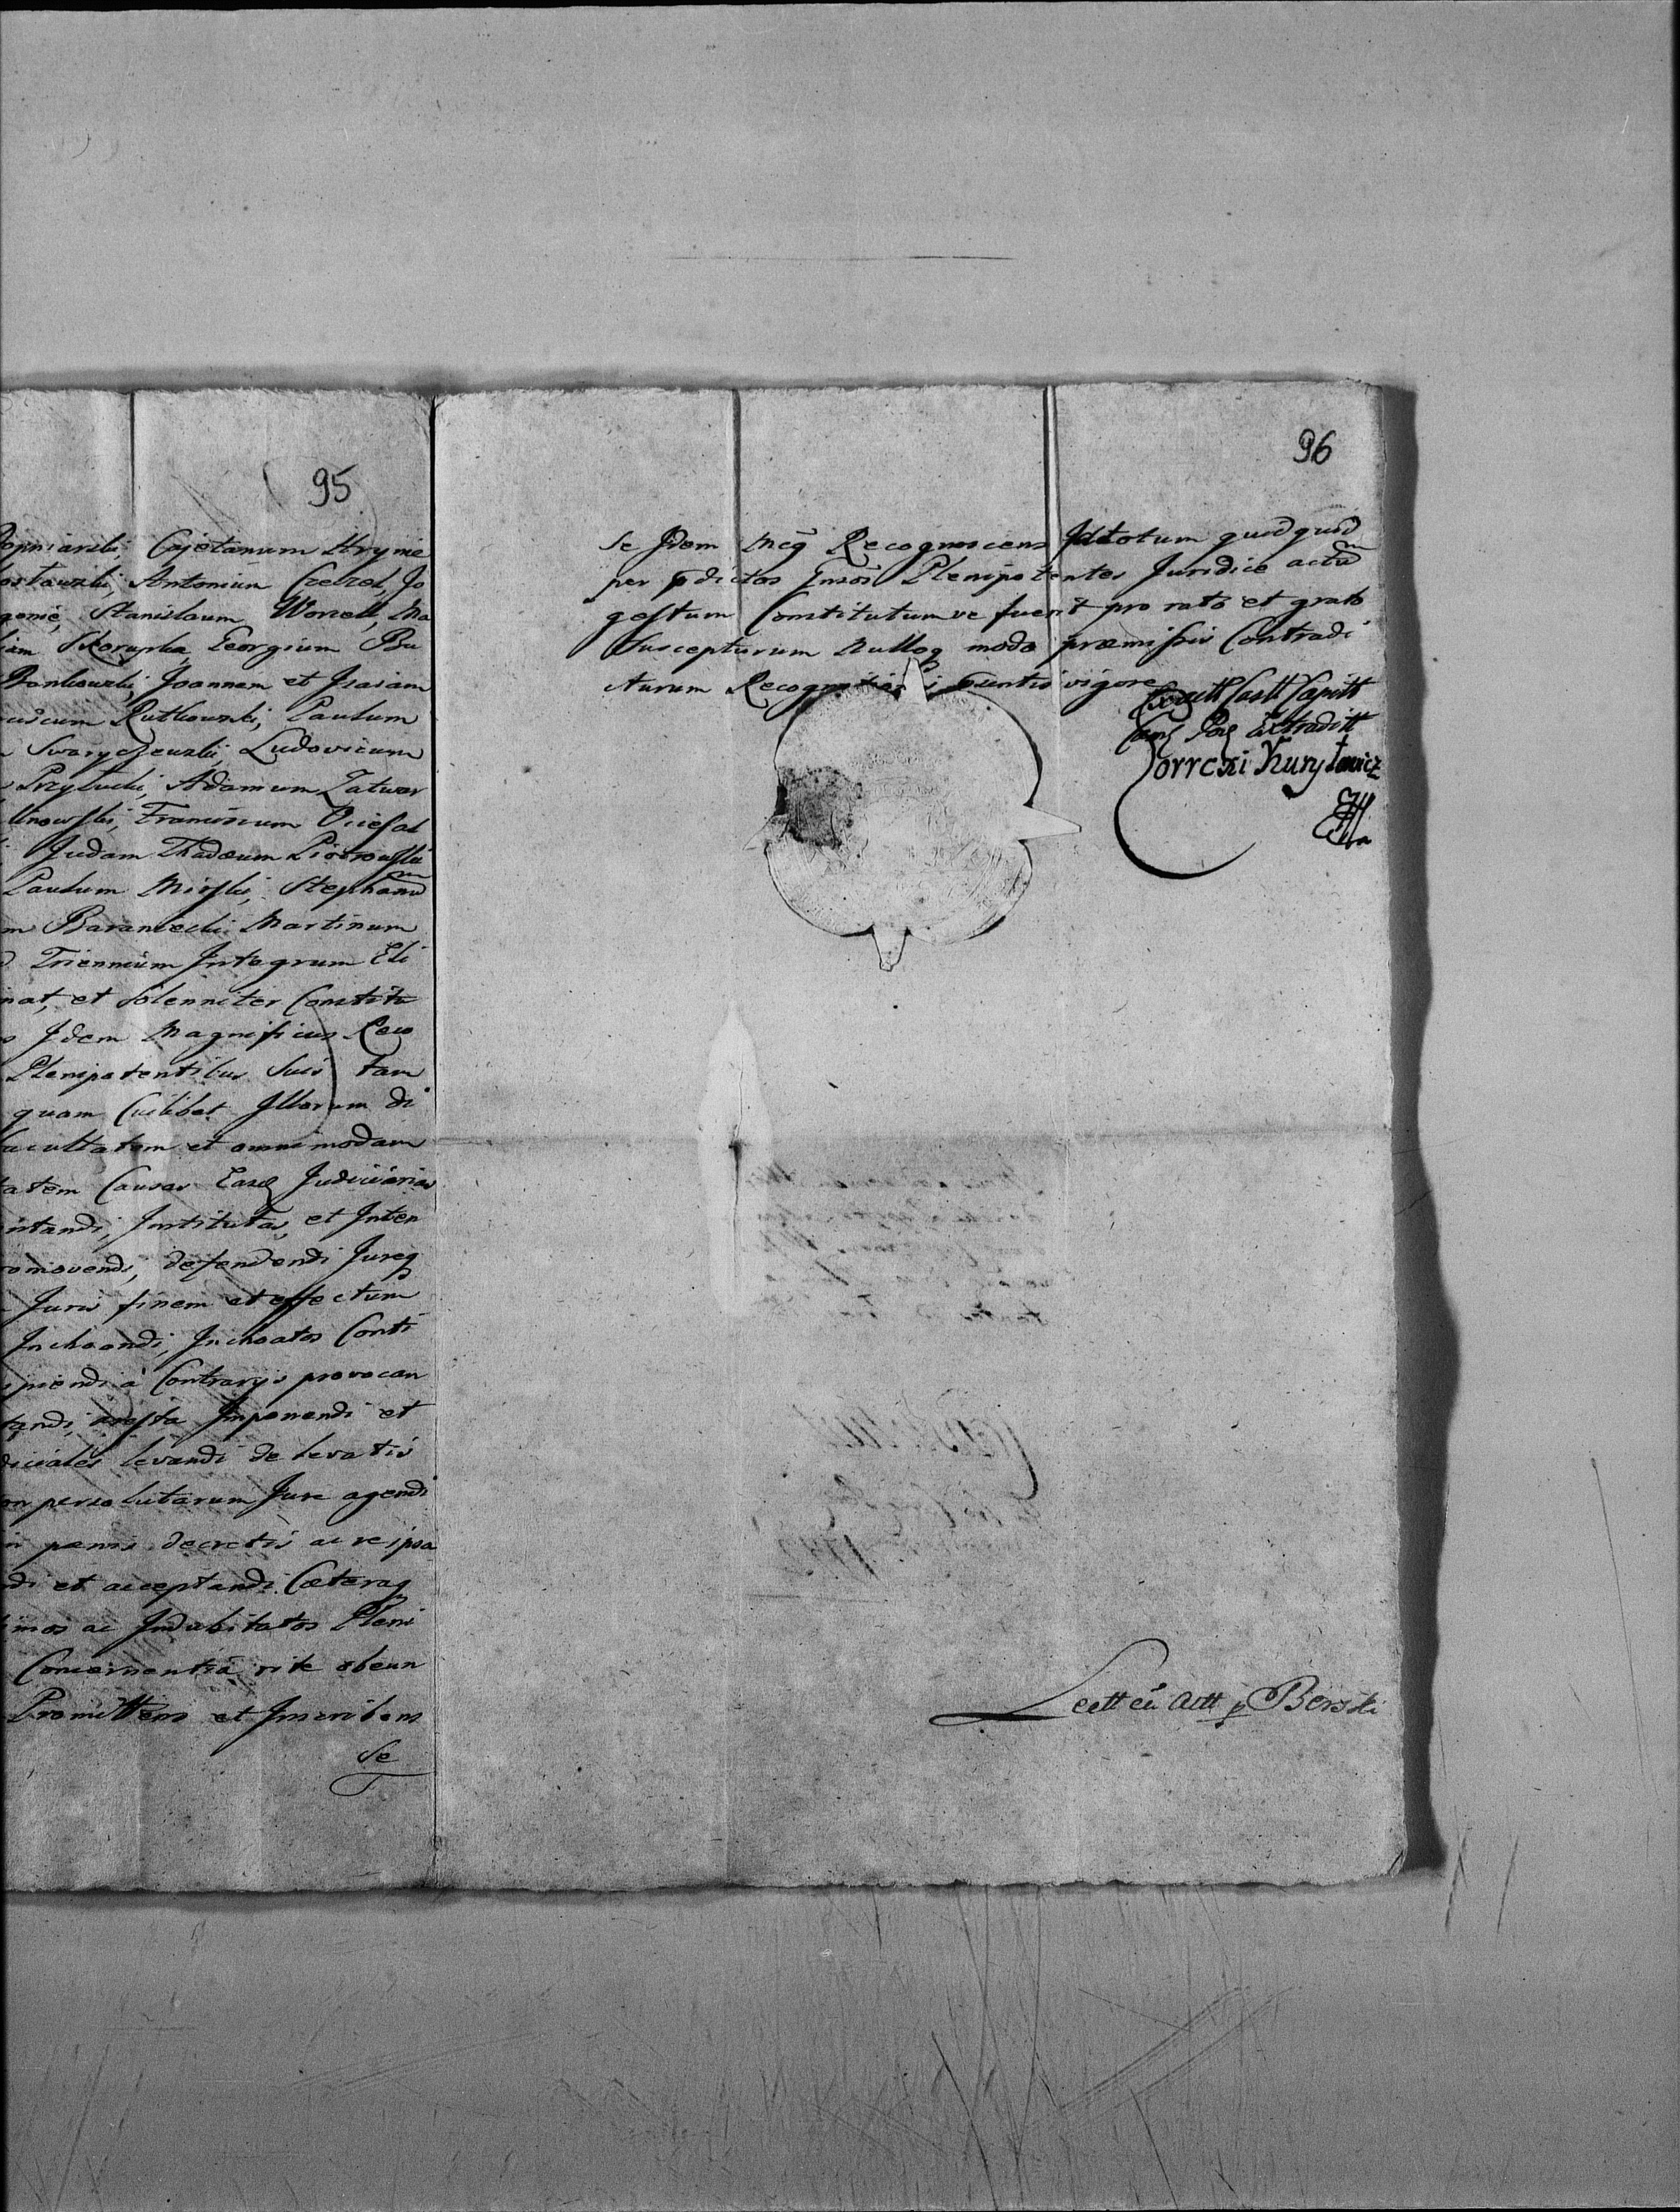 95
Cajetanum Hrynie
Antonium Czeczel, Jo
Stanislaum Worcell, Ma
Skorupka Georgium Bu
Joannem et Isaiam
Rutkowski, Paulum
Swaryczewski Ludovicum
Przyłucki, Adamum Zatwar
Franciscum Ociesal
Judam Thadæum Piotrowski
Paulum Mirski, Stephanum
Baraniecki Martinum
Triennium Integrum Eli
nat, et Solenniter Constitu
Idem Magnificus Reco
Plenipotentibus Suis tam
quam Cuilibet Illorum di
facultatem et omnimodam
tatem Causas Easq Judiciarias
intandi, Institutas, et Inten
romovendi, defendendi Jureq
Juris finem et effectum
Inchoandi, Inchoatos Conti
à Contrarijs provocan
Imponendi et
diciales levandi de levatis
on persolutarum Jure agendi
pænis decretis ac re ipsa
di et acceptandi Cæteraq
imos ac Indubitatos Pleni
Concernentia rite obeun
Promittens et Inscribens
Se
96
Se Idem Mcq Recognoscens Id totum quidquid
per pdictos Plenipotentes Juridice actum
gestum Constitutum ve fuerit pro rato et grato
Suscepturum Nulloq modo præmissis Contradi
cturum Recognitionis vigore
Extraditt
Correxi Kuryłowicz
Lectt cu Actt p Berski